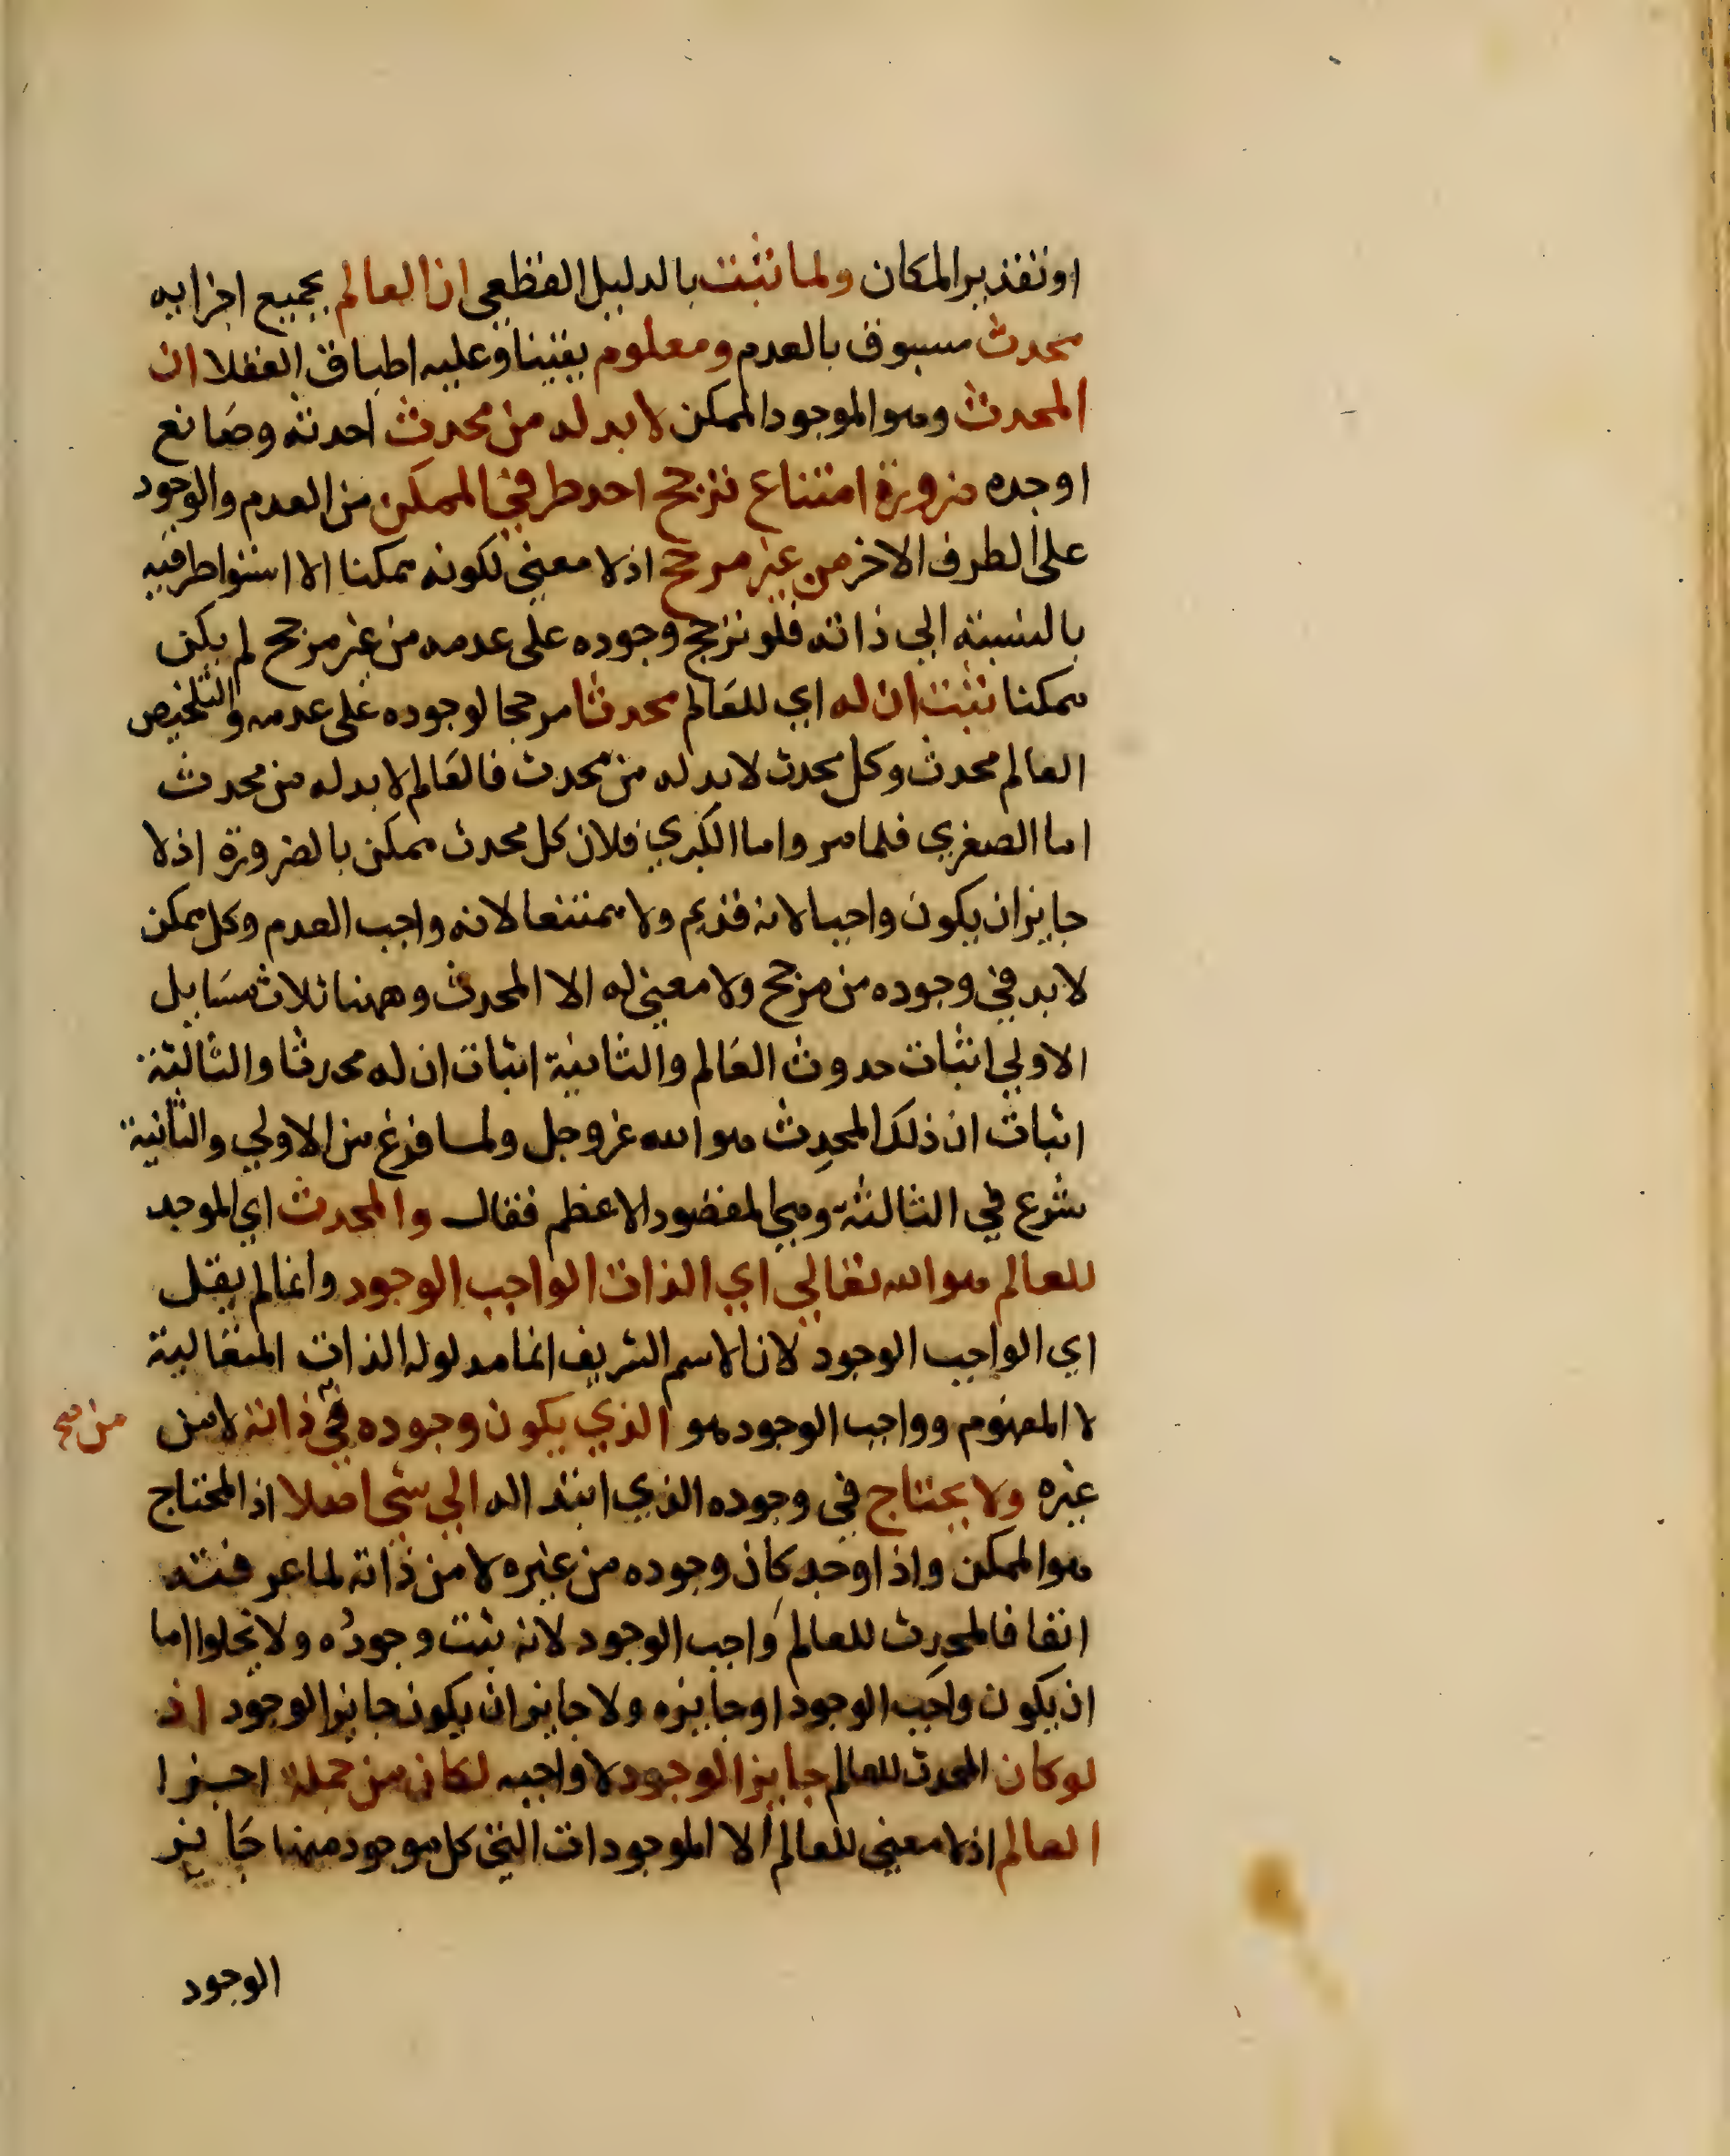 او تقدير المكان ولما ثبت بالدليل القطعي ان العالم بجميع اجزايه
محدث مسبوق بالعدم ومعلوم يقينا وعليه اطباق العقلا ان
المحدث وهو الموجود الممكن لا بد له من محدث احدثه وصانع
اوجده ضرورة امتناع ترجح احد طرفي الممكن من العدم والوجود
على الطرف الاخر من غير مرجح اذ لا معني لكونه ممكنا الا استوا طرفيه
بالنسبة الي ذاته فلو ترجح وجوده على عدمه من غير مرجح لم يكن
ممكنا ثبت ان له اي للعالم محدثا مرجحا لوجوده على عدمه والتلخيص
العالم محدث وكل محدث لا بد له من محدث فالعالم لا بد له من محدث
اما الصغري فلما مر واما الكبري فلان كل محدث ممكن بالضرورة اذ لا
جايز ان يكون واجبا لانه قديم ولا ممتنعا لانه واجب العدم وكل ممكن
لا بد في وجوده من مرجح ولا معني له الا المحدث وههنا ثلاث مسايل
الاولي اثبات حدوث العالم والثانية اثبات ان له محدثا والثالثة
اثبات ان ذلك المحدِث هو الله عز وجل ولما فرغ من الاولي والثانية
شرع في الثالثة وهي المقصود الاعظم فقال والمحدث اي الموجد
للعالم هو الله تعالي اي الذات الواجب الوجود وانما لم يقل
اي الواجب الوجود لان الاسم الشريف انما مدلوله الذات المتعالية
لا المفهوم وواجب الوجود هو الذي يكون وجوده في ذاته لا من
من صح
غيره ولا يحتاج في وجوده الذي ابتد اله الي شي اصلا اذ المحتاج
هو الممكن واذا وجد كان وجوده من غيره لا من ذاته لما عرفته
انفا فالمحدِث للعالم واجب الوجود لانه ثبت وجوده ولا يخلوا اما
ان يكون واجب الوجود او جايزه ولا جايز ان يكون جايز الوجود اذ
لو كان المحدث للعالم جايز الوجود لا واجبه لكان من جملة اجزا
العالم اذ لا معني للعالم الا الموجودات التي كل موجود منها جايز
الوجود